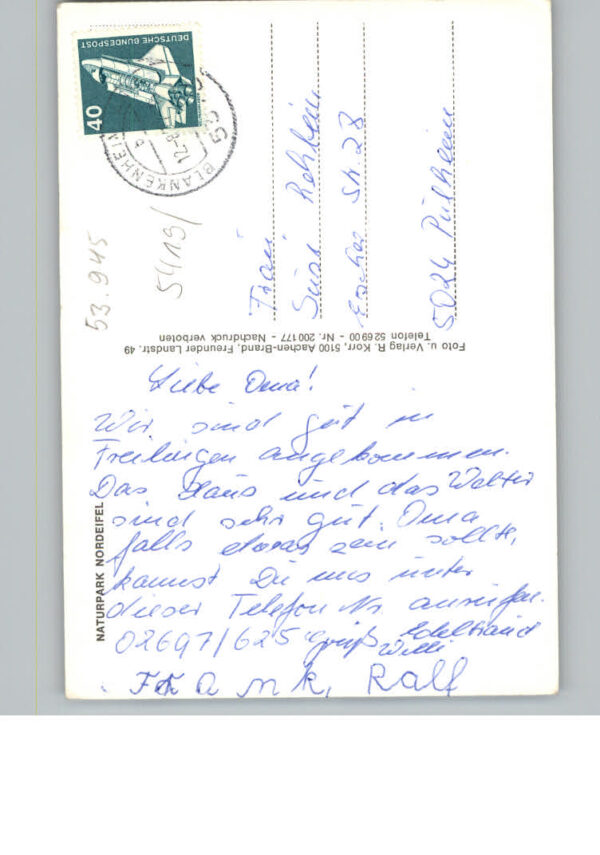 Liebe Oma!
Wir sind gut in
Freilingen angekommen.
Das Haus und das Wetter
sind sehr gut. Oma
falls etwas sein sollte,
kannst Du uns unter
dieser Telefon Nr. anrufen.
02697/625 Gruß Edeltraud
Willi
Frank, Ralf
NATURPARK NORDEIFEL
Foto u. Verlag R. Korr, 5100 Aachen-Brand, Freunder Landstr. 49
Telefon 526900 - Nr. 200177 - Nachdruck verboten
Frau
Escher Str. 28
5024 Pulheim
DEUTSCHE BUNDESPOST
40
BLANKENHEIM
53.945